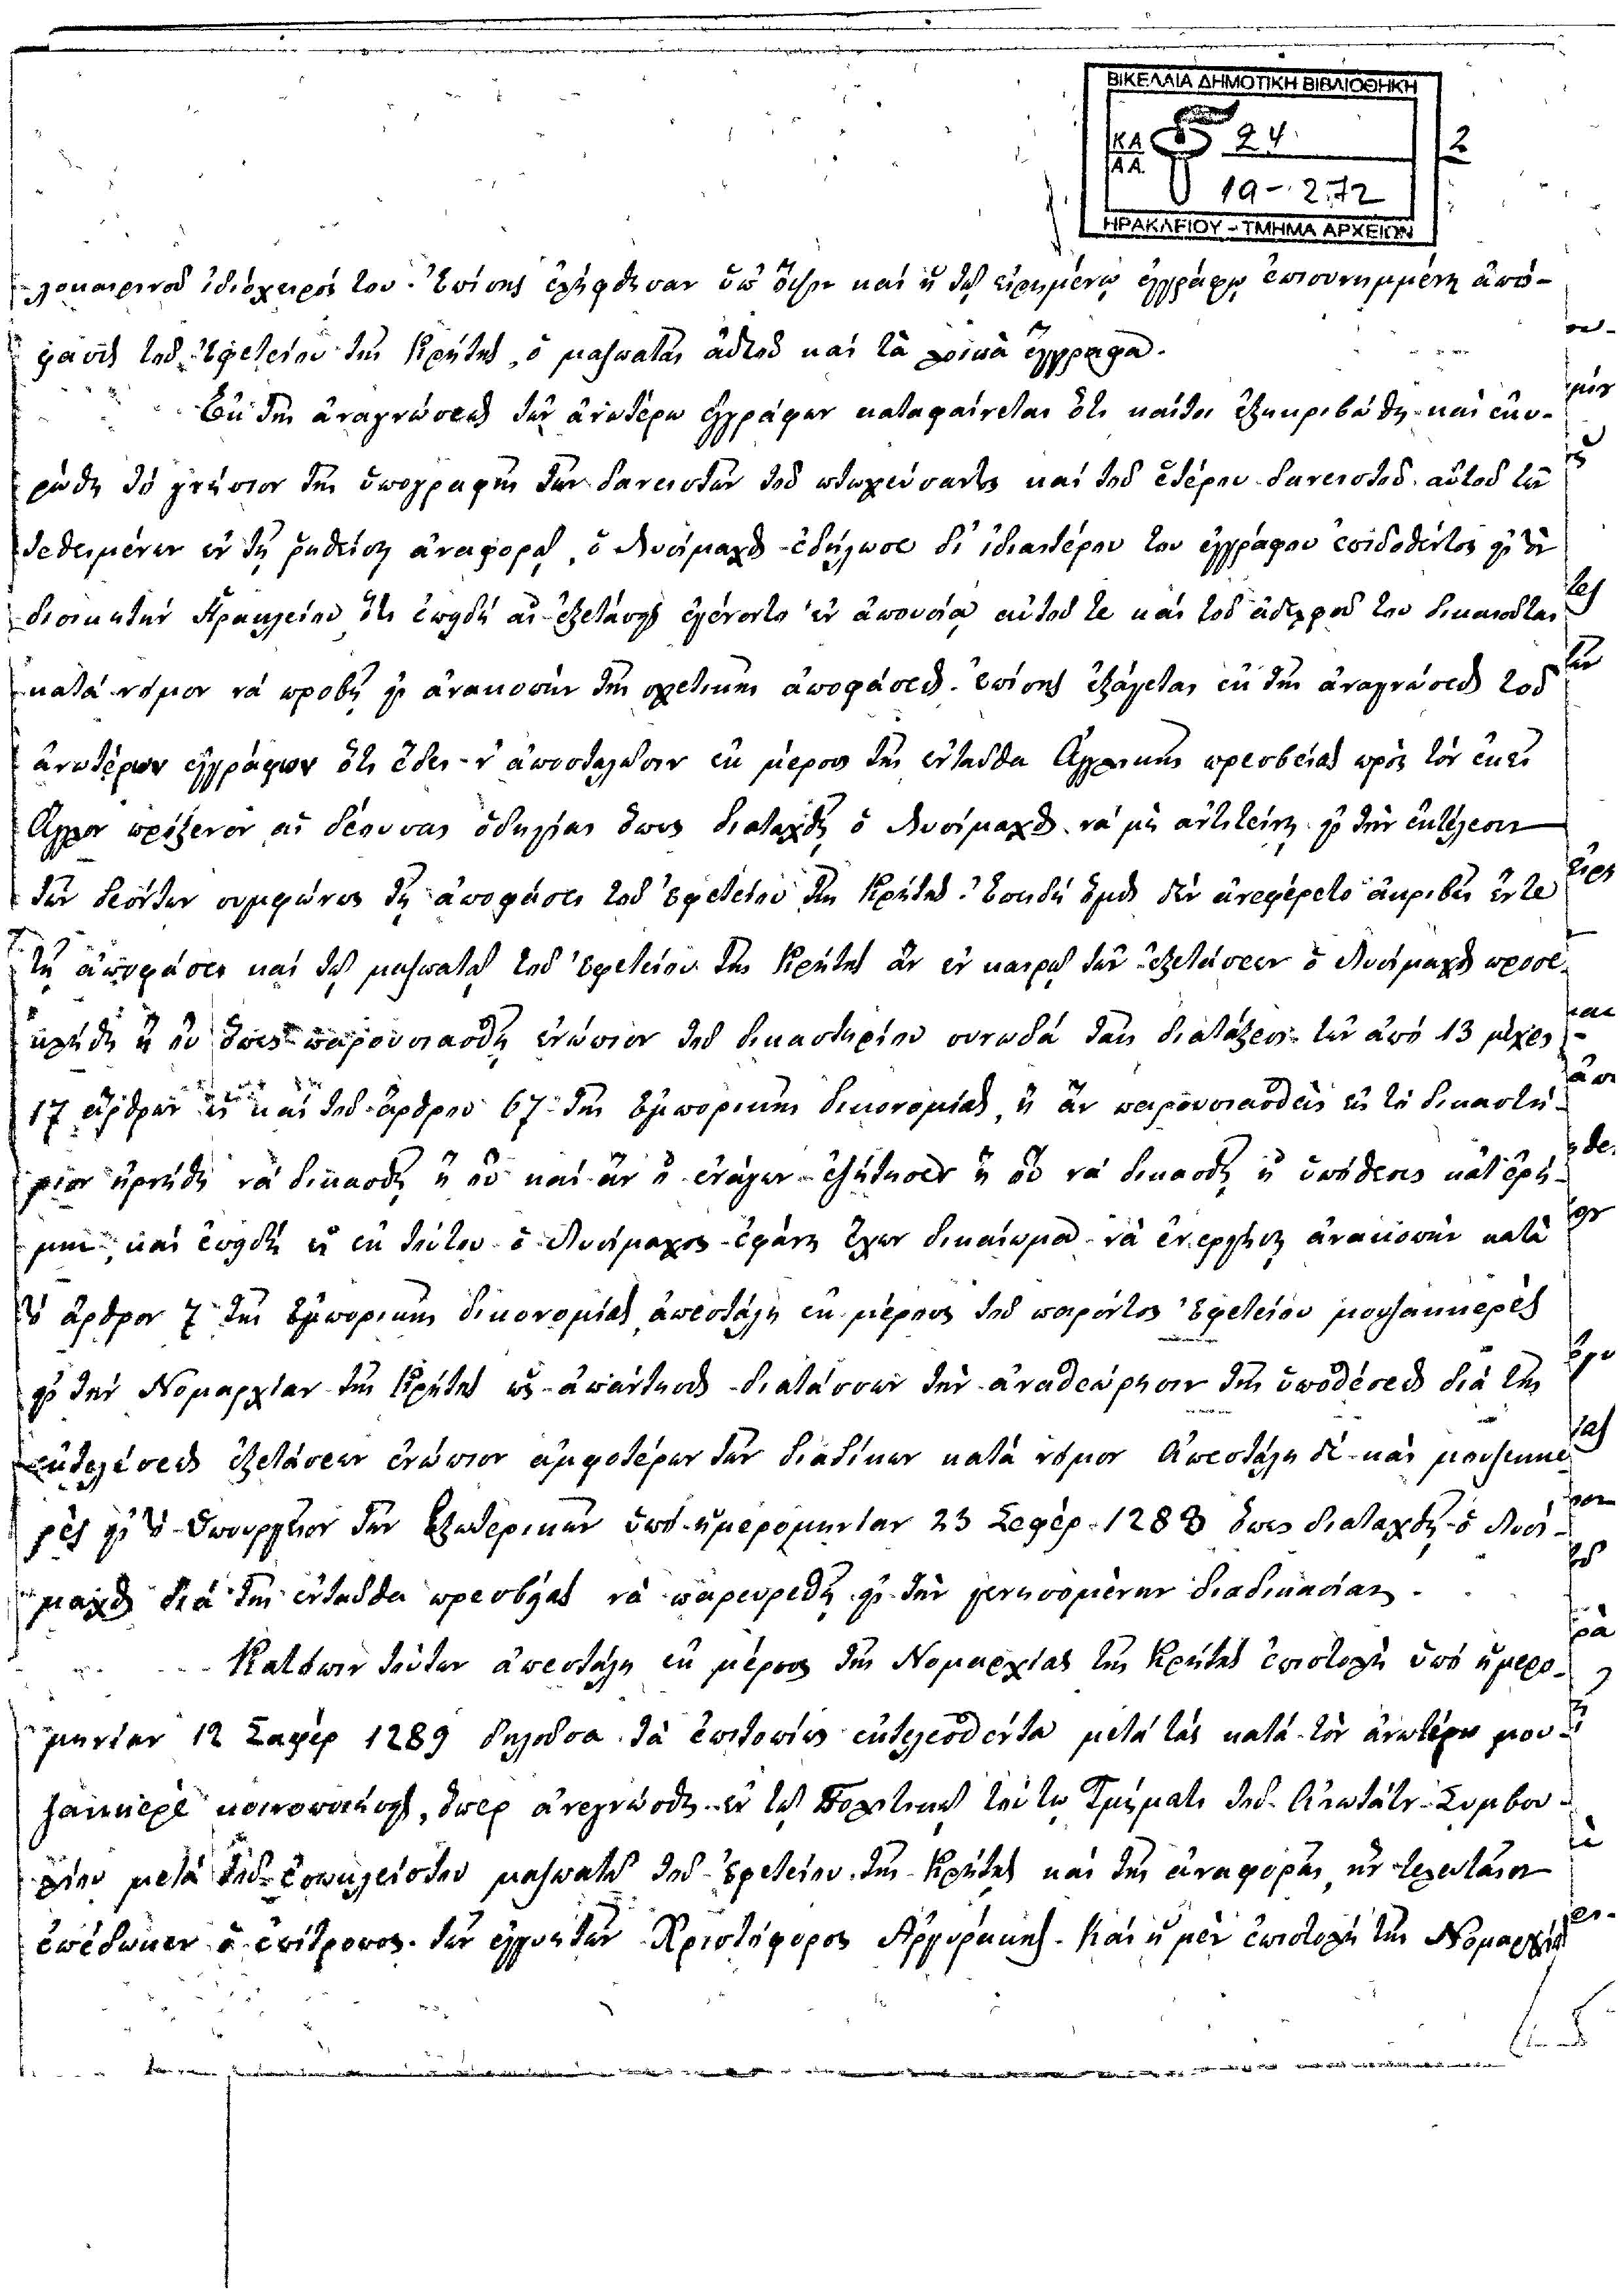 ΒΙΚΕΛΑΙΑ ΔΗΜΟΤΙΚΗ ΒΙΒΛΙΟΘΗΚΗ
ΚΑ 24 2
ΑΑ 19-272
ΗΡΑΚΛΕΙΟΥ - ΤΜΗΜΑ ΑΡΧΕΙΩΝ
λοκαιρινοῦ ἰδιόχειρός του. Ἐπίσης ἐλήφθησαν ὑπ' ὄψιν καί ἡ τῷ εἰρημένῳ ἐγγράφῳ ἐπισυνημμένη ἀπό-
φασις τοῦ Ἐφετείου τῆς Κρήτης, ὁ μαζπατᾶς αὐτοῦ καί τὰ λοιπὰ ἔγγραφα.
Ἐκ τῆς ἀναγνώσεως τῶν ἀνωτέρω ἐγγράφων καταφαίνεται ὅτι καίτοι ἐξηκριβώθη καί ἐκυ-
ρώθη τό γνήσιον τῆς ὑπογραφῆς τῶν δανειστῶν τοῦ πτωχεύσαντος καί τοῦ ἑτέρου δανειστοῦ αὐτοῦ τῶν
τεθειμένων ἐν τῇ ῥηθείσῃ ἀναφορᾷ, ὁ Λυσίμαχος ἐδήλωσε δι' ἰδιαιτέρου του ἐγγράφου ἐπιδοθέντος εἰς τὸν
διοικητήν Ἡρακλείου ὅτι ἐπειδή αἱ ἐξετάσεις ἐγένοντο ἐν ἀπουσίᾳ αὐτοῦ τε καί τοῦ ἀδελφοῦ του δικαιοῦται
κατά νόμον νά προβῇ εἰς ἀνακοπήν τῆς σχετικῆς ἀποφάσεως. Ἐπίσης ἐξάγεται ἐκ τῆς ἀναγνώσεως τοῦ
ἀνωτέρων ἐγγράφων ὅτι ἔδει ν' ἀποσταλῶσιν ἐκ μέρους τῆς ἐνταῦθα Ἀγγλικῆς πρεσβείας πρός τόν ἐκεῖ
Ἄγγλον πρόξενον αἱ δέουσαι ὁδηγίαι ὅπως διαταχθῇ ὁ Λυσίμαχος νά μή ἀντιτείνῃ εἰς τήν ἐκτέλεσιν
τῶν δεόντων συμφώνως τῇ ἀποφάσει τοῦ Ἐφετείου τῆς Κρήτης. Ἐπειδή ὅμως δέν ἀνεφέρετο ἀκριβῶς ἔν τε
τῇ ἀποφάσει καί τῷ μαζπατᾷ τοῦ Ἐφετείου τῆς Κρήτης ἄν ἐν καιρῷ τῶν ἐξετάσεων ὁ Λυσίμαχος προσε-
κλήθη ἢ οὐ ὅπως παρουσιασθῇ ἐνώπιον τοῦ δικαστηρίου συνῳδά ταῖς διατάξεσι τῶν ἀπό 13 μέχρι
17 ἄρθρων καί τοῦ ἄρθρου 67 τῆς Ἐμπορικῆς δικονομίας, ἢ ἄν παρουσιασθείς εἰς τό δικαστή-
ριον ἠρνήθη νά δικασθῇ ἢ οὐ καί ἄν ὁ ἐνάγων ἐζήτησεν ἢ οὐ νά δικασθῇ ἡ ὑπόθεσις κατ' ἐρή-
μην, καί ἐπειδή ἐκ τούτου ὁ Λυσίμαχος ἐφάνη ἔχων δικαίωμα νά ἐνεργήσῃ ἀνακοπήν κατά
τό ἄρθρον 7 τῆς Ἐμπορικῆς δικονομίας, ἀπεστάλη ἐκ μέρους τοῦ παρόντος Ἐφετείου μουζακκερές
εἰς τήν Νομαρχίαν τῆς Κρήτης εἰς ἀπάντησιν διατάσσων τήν ἀναθεώρησιν τῆς ὑποθέσεως διά τῆς
ἐκτελέσεως ἐξετάσεων ἐνώπιον ἀμφοτέρων τῶν διαδίκων κατά νόμον. Ἀπεστάλη δέ καί μουζακκε-
ρές εἰς τό Ὑπουργεῖον τῶν Ἐξωτερικῶν ὑπό ἡμερομηνίαν 23 Σεφέρ 1288 ὅπως διαταχθῇ ὁ Λυσί-
μαχος διά τῆς ἐνταῦθα πρεσβείας νά παρευρεθῇ εἰς τήν γενησομένην διαδικασίαν.
Κατόπιν τούτων ἀπεστάλη ἐκ μέρους τῆς Νομαρχίας τῆς Κρήτης ἐπιστολή ὑπό ἡμερο-
μηνίαν 12 Σαφέρ 1289 δηλοῦσα τά ἐπιτοπίως ἐκτελεσθέντα μετά τάς κατά τόν ἀνωτέρω μου-
ζακκερέ κοινοποιήσεις, ὅπερ ἀνεγνώσθη ἐν τῷ Πολιτικῷ τούτῳ Τμήματι τοῦ Ἀνωτάτου Συμβου-
λίου μετά τοῦ ἐσωκλείστου μαζπατᾶ τοῦ Ἐφετείου τῆς Κρήτης καί τῆς ἀναφορᾶς, ἥν τελευταῖον
ἐπέδωκεν ὁ ἐπίτροπος τῶν ἐγγυητῶν Χριστόφορος Ἀργυράκης. Καί ἡ μέν ἐπιστολή τῆς Νομαρχίας